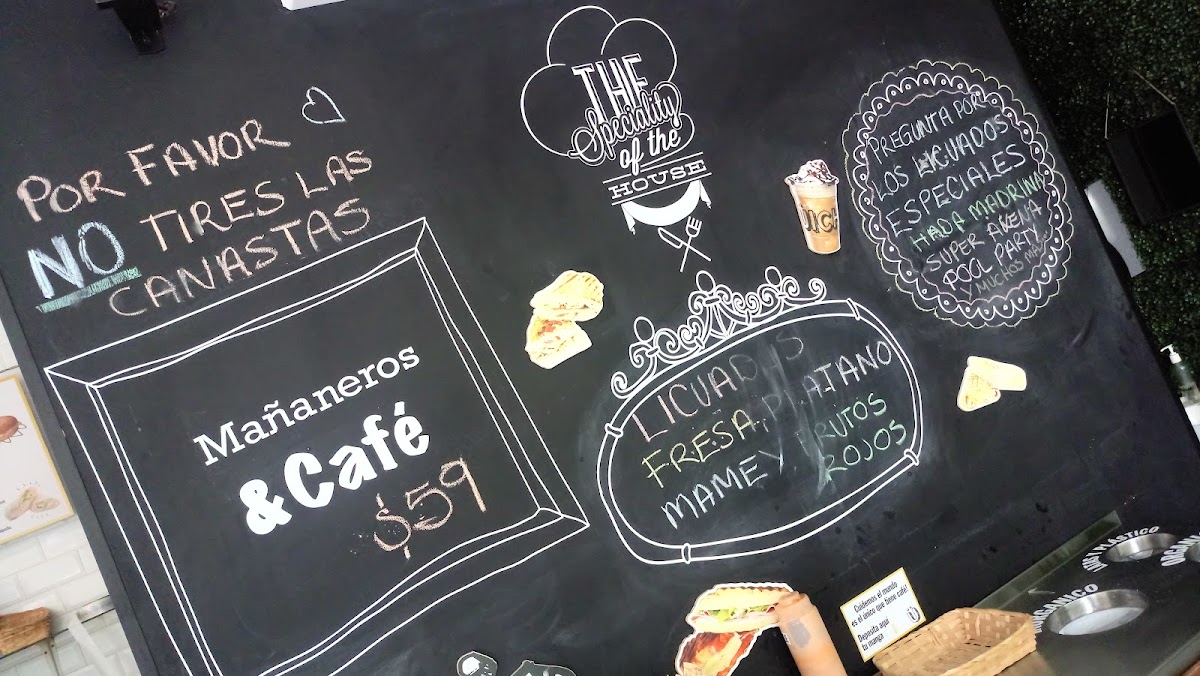 POR FAVOR
NO TIRES LAS
CANASTAS
Mañaneros
&Café
$59
THE
Speciality
of the
HOUSE
LICUADOS
FRESA, PLATANO
MAMEY, FRUTOS
ROJOS
PREGUNTA POR
LOS LICUADOS
ESPECIALES
HADA MADRINA
SUPER AVENA
POOL PARTY
Y MUCHOS MAS
Cuidemos el mundo
es el único que tiene café!
Deposita aquí
tu manga
PLÁSTICO